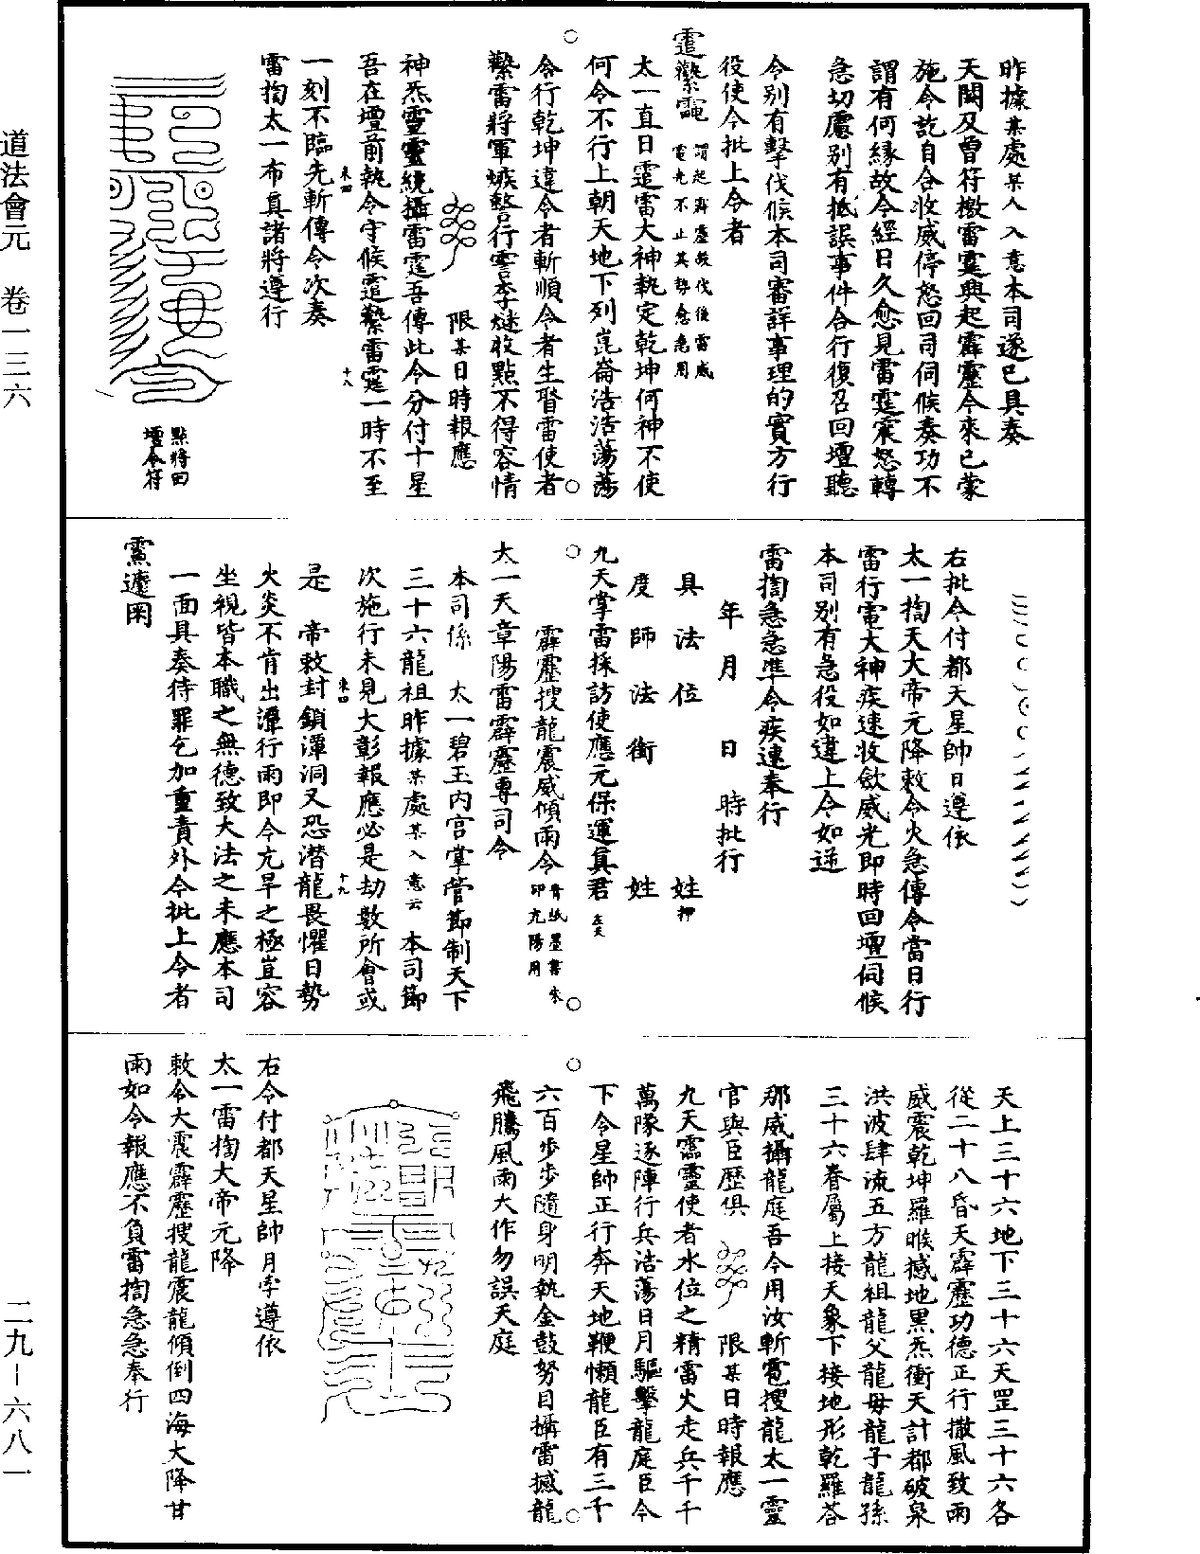 道法會元　卷一三六
二九－六八一
昨據某處某人入意本司遂已具奏
天闕及曾符檄雷霆興起霹靂今來已蒙
施令訖自合收威停怒回司伺候奏功不
謂有何緣故今經日久愈見雷霆震怒轉
急切慮別有抵誤事件合行復召回壇聽
令別有擊伐候本司審詳事理的實方行
役使今批上令者
太一直日霆雷大神執定乾坤何神不使
何令不行上朝天地下列崑崙浩浩蕩蕩
令行乾坤違令者斬順令者生督雷使者
繫雷將軍嫉咎行霅李燧收點不得容情
限某日時報應
神炁靈靈統攝雷霆吾傳此令分付十星
吾在壇前執令守候霆繫雷霆一時不至
一刻不臨先斬傳令次奏
雷掏太一布真諸將遵行
點將回
壇令符
右批令付都天星帥日遵依
太一掏天大帝元降敕令火急傳令當日行
雷行電大神疾速收斂威光即時回壇伺候
本司別有急役如違上令如逆
雷掏急急準令疾速奉行
年　月　日　時批行
具　法　位　姓押
度　師　法　銜　姓
九天掌雷採訪使應元保運真君
霹靂搜龍震威傾雨令
太一天章陽雷霹靂專司令
本司係　太一碧玉内宫掌管節制天下
三十六龍祖昨據某處某入意云　本司節
次施行未見大彰報應必是劫數所會或
是　帝敕封鎖潭洞又恐潛龍畏懼日勢
火炎不肯出潭行雨即今亢旱之極豈容
坐視皆本職之無德致大法之未應本司
一面具奏待罪乞加重責外令批上令者
天上三十六地下三十六天罡三十六各
從二十八昏天霹靂功德正行撒風致雨
威震乾坤羅睺撼地黑炁衝天計都破泉
洪波肆流五方龍祖龍父龍母龍子龍孫
三十六眷屬上接天象下接地形乾羅荅
那威攝龍庭吾今用汝斬雹搜龍太一靈
官與臣歷俱　限某日時報應
九天靈使者水位之精雷火走兵千千
萬隊逐陣行兵浩蕩日月驅擊龍庭臣今
下令星帥正行奔天地鞭懶龍臣有三千
六百步步隨身明執金鼓努目攝雷撼龍
飛騰風雨大作勿誤天庭
右令付都天星帥月孛遵依
太一雷掏大帝元降
敕令大震霹靂搜龍震龍傾倒四海大降甘
雨如令報應不負雷掏急急奉行